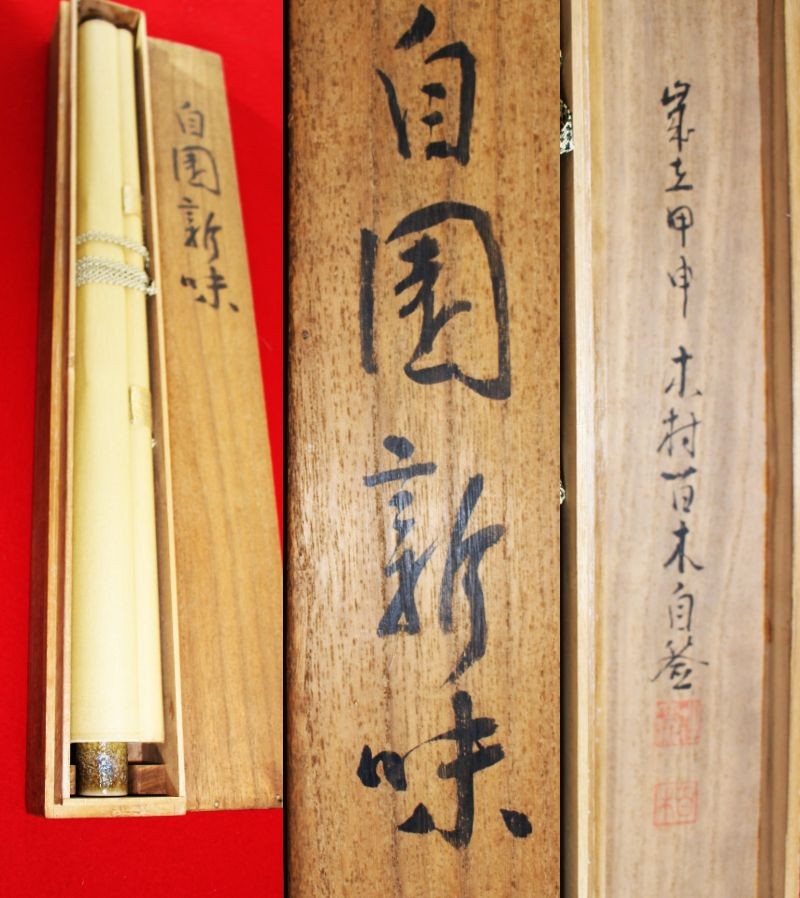 自園新味
自園新味
歳在甲申 木村百木自簽